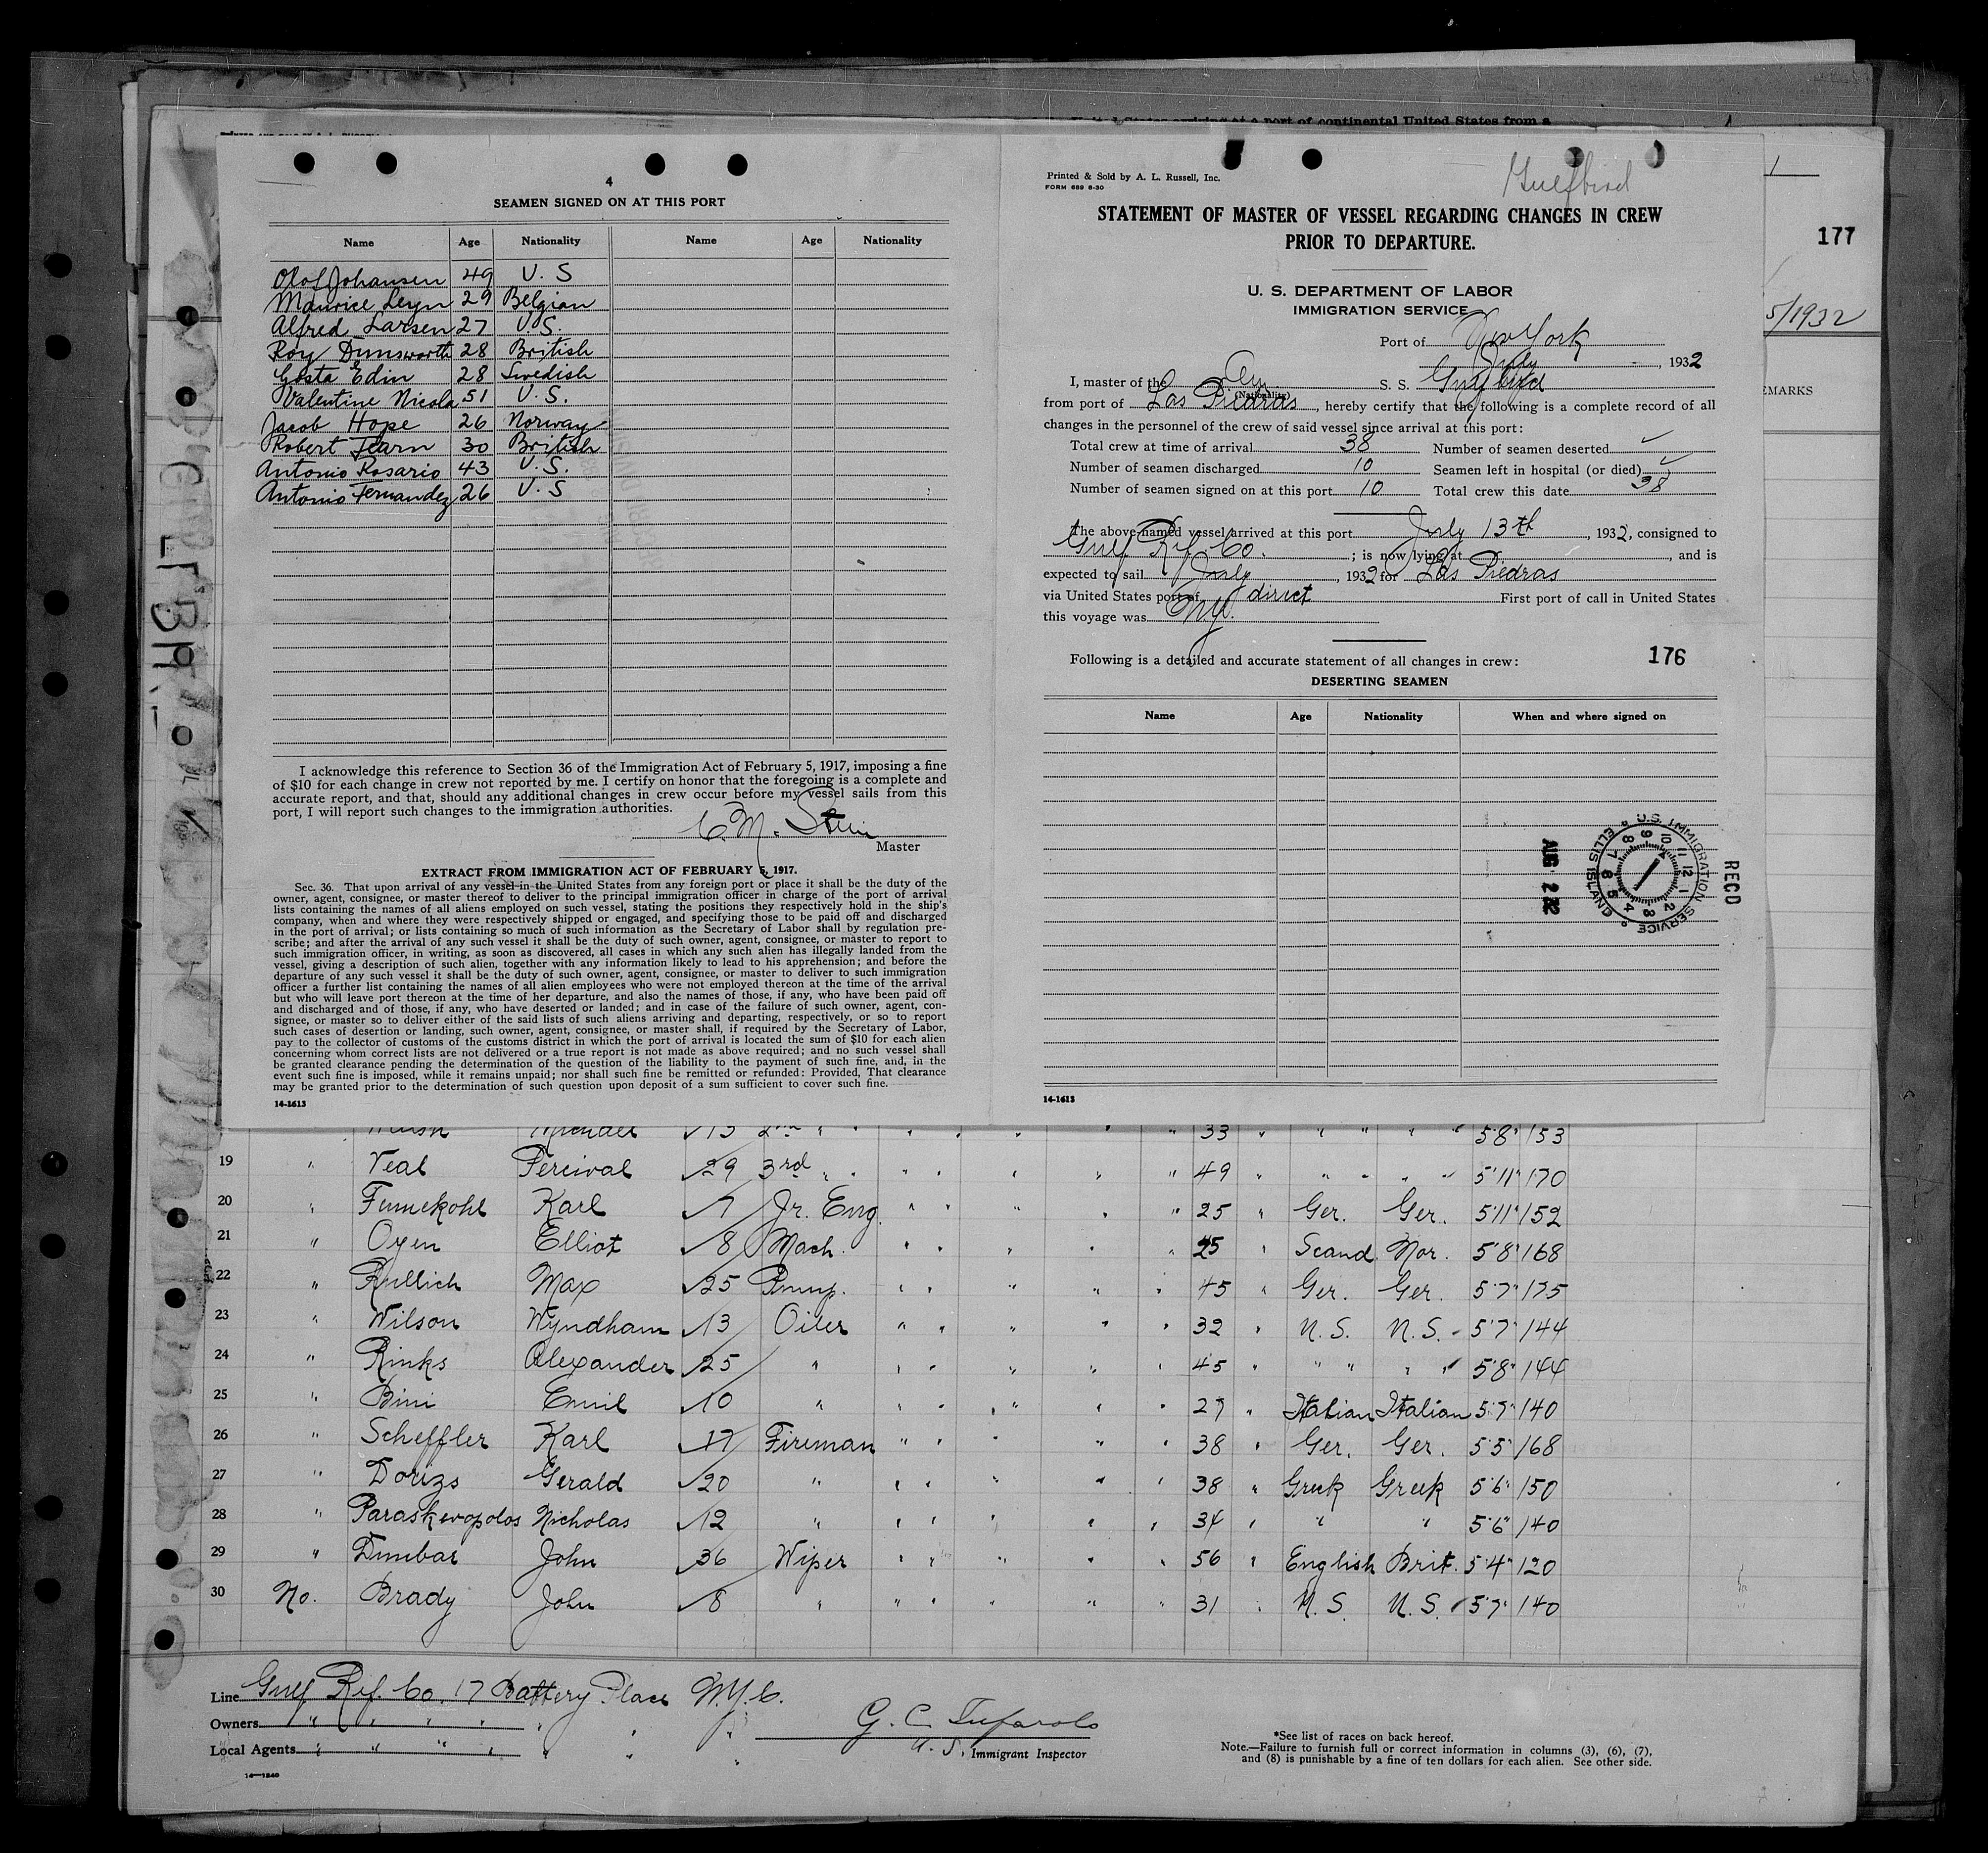 4
SEAMEN SIGNED ON AT THIS PORT
Name Age Nationality Name Age Nationality
Olof Johansen 49 U. S
Maurice Leyn 29 Belgian
Alfred Larsen 27 U.S.
Roy Dunsworth 28 British
Gosta Edin 28 Swedish
Valentine Nicola 51 U. S.
Jacob Hope 26 Norway
Robert Fearn 30 British
Antonio Rosario 43 U. S.
Antonio Fernandez 26 U. S
I acknowledge this reference to Section 36 of the Immigration Act of February 5, 1917, imposing a fine
of $10 for each change in crew not reported by me. I certify on honor that the foregoing is a complete and
accurate report, and that, should any additional changes in crew occur before my vessel sails from this
port, I will report such changes to the immigration authorities.
C. M. Stein
Master
EXTRACT FROM IMMIGRATION ACT OF FEBRUARY 5, 1917.
Sec. 36. That upon arrival of any vessel in the United States from any foreign port or place it shall be the duty of the
owner, agent, consignee, or master thereof to deliver to the principal immigration officer in charge of the port of arrival
lists containing the names of all aliens employed on such vessel, stating the positions they respectively hold in the ship's
company, when and where they were respectively shipped or engaged, and specifying those to be paid off and discharged
in the port of arrival; or lists containing so much of such information as the Secretary of Labor shall by regulation pre-
scribe; and after the arrival of any such vessel it shall be the duty of such owner, agent, consignee, or master to report to
such immigration officer, in writing, as soon as discovered, all cases in which any such alien has illegally landed from the
vessel, giving a description of such alien, together with any information likely to lead to his apprehension; and before the
departure of any such vessel it shall be the duty of such owner, agent, consignee, or master to deliver to such immigration
officer a further list containing the names of all alien employees who were not employed thereon at the time of the arrival
but who will leave port thereon at the time of her departure, and also the names of those, if any, who have been paid off
and discharged and of those, if any, who have deserted or landed; and in case of the failure of such owner, agent, con-
signee, or master so to deliver either of the said lists of such aliens arriving and departing, respectively, or so to report
such cases of desertion or landing, such owner, agent, consignee, or master shall, if required by the Secretary of Labor,
pay to the collector of customs of the customs district in which the port of arrival is located the sum of $10 for each alien
concerning whom correct lists are not delivered or a true report is not made as above required; and no such vessel shall
be granted clearance pending the determination of the question of the liability to the payment of such fine, and, in the
event such fine is imposed, while it remains unpaid; nor shall such fine be remitted or refunded: Provided, That clearance
may be granted prior to the determination of such question upon deposit of a sum sufficient to cover such fine.
14-1613
Gulfbird
Printed & Sold by A. L. Russell, Inc.
FORM 689 6-30
STATEMENT OF MASTER OF VESSEL REGARDING CHANGES IN CREW
PRIOR TO DEPARTURE.
U. S. DEPARTMENT OF LABOR
IMMIGRATION SERVICE
Port of New York
July, 1932
I, master of the Am (Nationality) S. S. Gulfbird
from port of Las Piedras, hereby certify that the following is a complete record of all
changes in the personnel of the crew of said vessel since arrival at this port:
Total crew at time of arrival 38 Number of seamen deserted ✓
Number of seamen discharged 10 Seamen left in hospital (or died) ✓
Number of seamen signed on at this port 10 Total crew this date 38
The above-named vessel arrived at this port July 13th, 1932, consigned to
Gulf Ref. Co. ; is now lying at , and is
expected to sail July, 1932 for Las Piedras
via United States port of direct First port of call in United States
this voyage was N.Y.
Following is a detailed and accurate statement of all changes in crew: 176
DESERTING SEAMEN
Name Age Nationality When and where signed on
RECD
U.S. IMMIGRATION SERVICE ELLIS ISLAND
AUG 2 32
14-1613
177
5/1932
EMARKS
33 5'8" 153
19 " Veal Percival 29 3rd " 49 " 5'11" 170
20 " Fumekohl Karl 7 Jr. Eng. " 25 " Ger. Ger. 5'11" 152
21 " Oyen Elliot 8 Mach. " 25 " Scand. Nor. 5'8" 168
22 " Rullich Max 25 Pump. " 45 " Ger. Ger. 5'7" 175
23 " Wilson Wyndham 13 Oiler " 32 " U.S. U.S. 5'7" 144
24 " Rinks Alexander 25 " 45 " " " 5'8" 144
25 " Bini Emil 10 " 27 " Italian Italian 5'7" 140
26 " Scheffler Karl 17 Fireman " 38 " Ger. Ger. 5'5" 168
27 " Dorizs Gerald 20 " 38 " Greek Greek 5'6" 150
28 " Paraskevopolos Nicholas 12 " 34 " " " 5'6" 140
29 " Dunbar John 36 Wiper " 56 " English Brit. 5'4" 120
30 No. Brady John 8 " 31 " U.S. U.S. 5'7" 140
Line Gulf Ref. Co. 17 Battery Place N.Y.C.
Owners " " " " "
Local Agents " " " " "
U. S. Immigrant Inspector
*See list of races on back hereof.
Note.—Failure to furnish full or correct information in columns (3), (6), (7),
and (8) is punishable by a fine of ten dollars for each alien. See other side.
14—1240